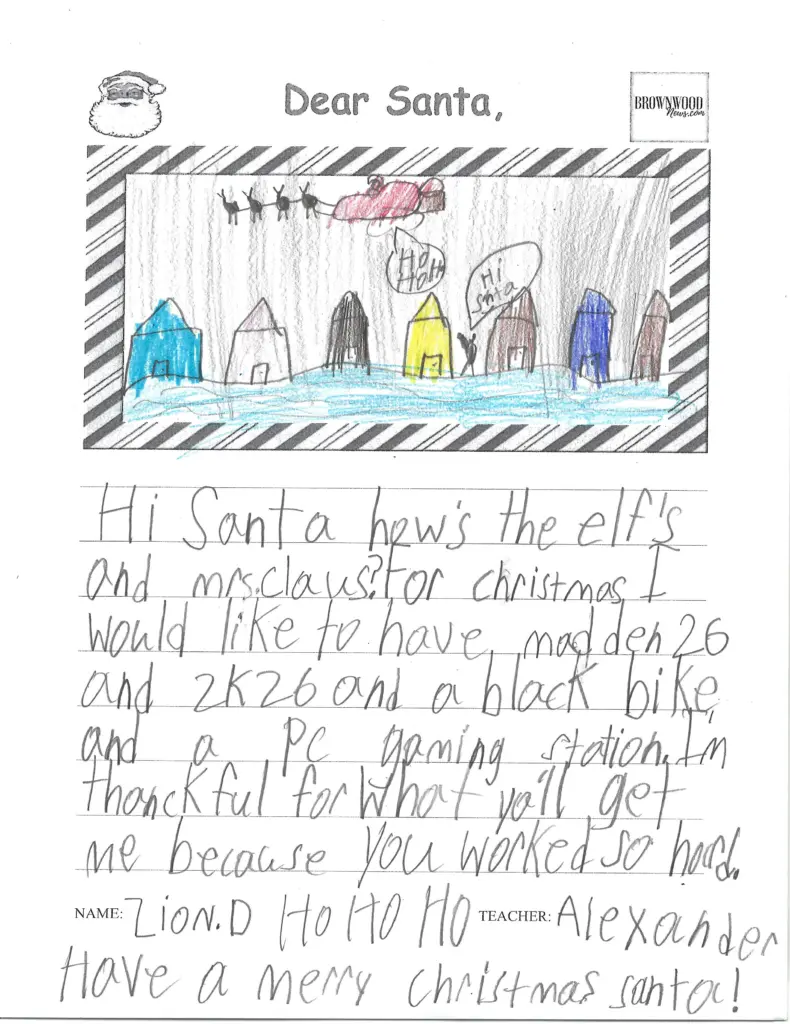 Dear Santa,
BROWNWOOD
News.com
Ho
HoHH
Hi
snta
Hi Santa how's the elf's
and mrs.claus? For christmas I
would like to have madden 26
and 2K26 and a black bike
and a PC gaming station. I'm
thanckful for what ya'll get
me because you worked so hard.
NAME: Zion.D HO HO HO TEACHER: Alexander
Have a merry christmas santa!